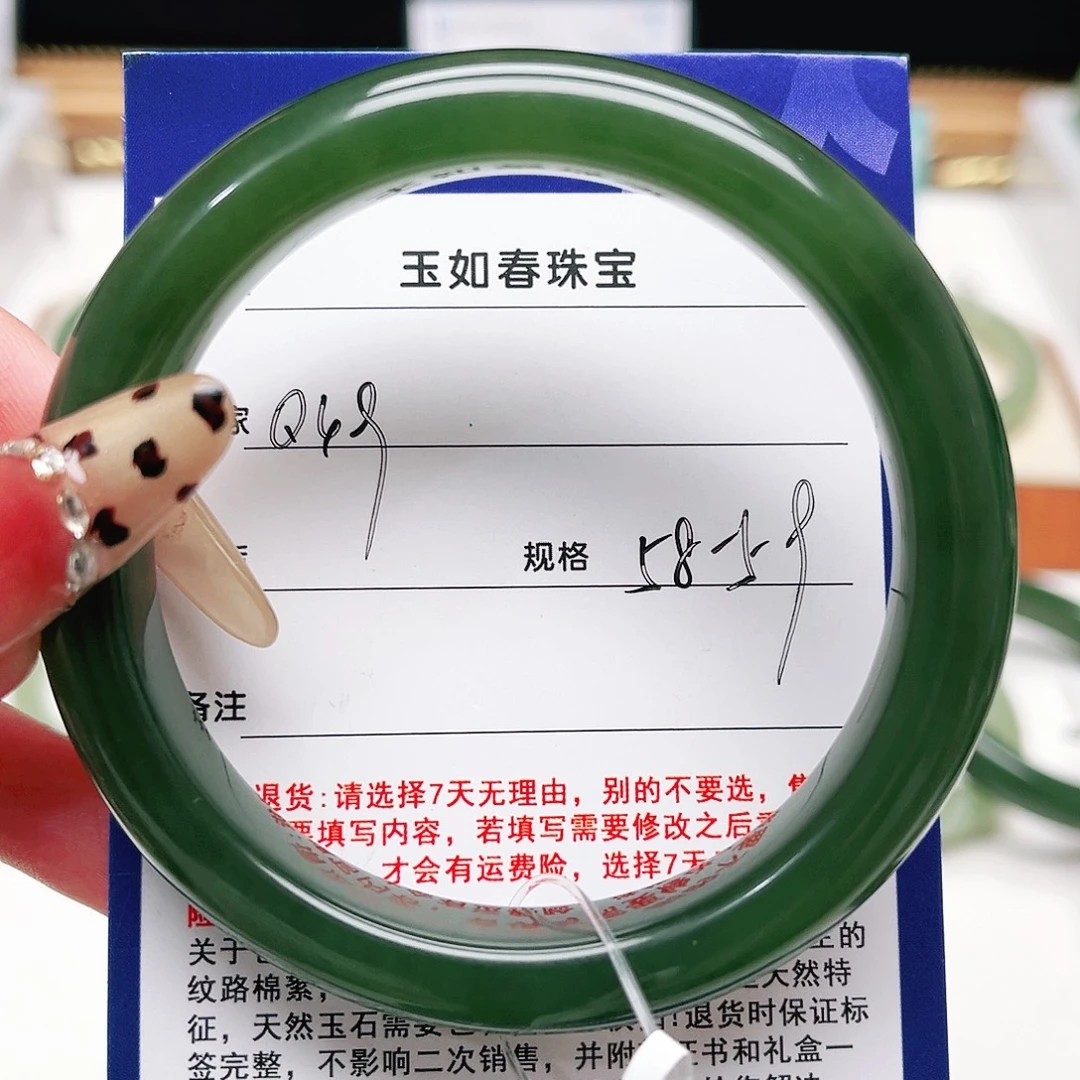 玉如春珠宝
家 Q49
规格 58-59
备注
退货:请选择7天无理由，别的不要选，售
要填写内容，若填写需要修改之后
才会有运费险，选择7天
险
关于 的
纹路棉絮， 天然特
征，天然玉石需要 !退货时保证标
签完整，不影响二次销售，并附 证书和礼盒一